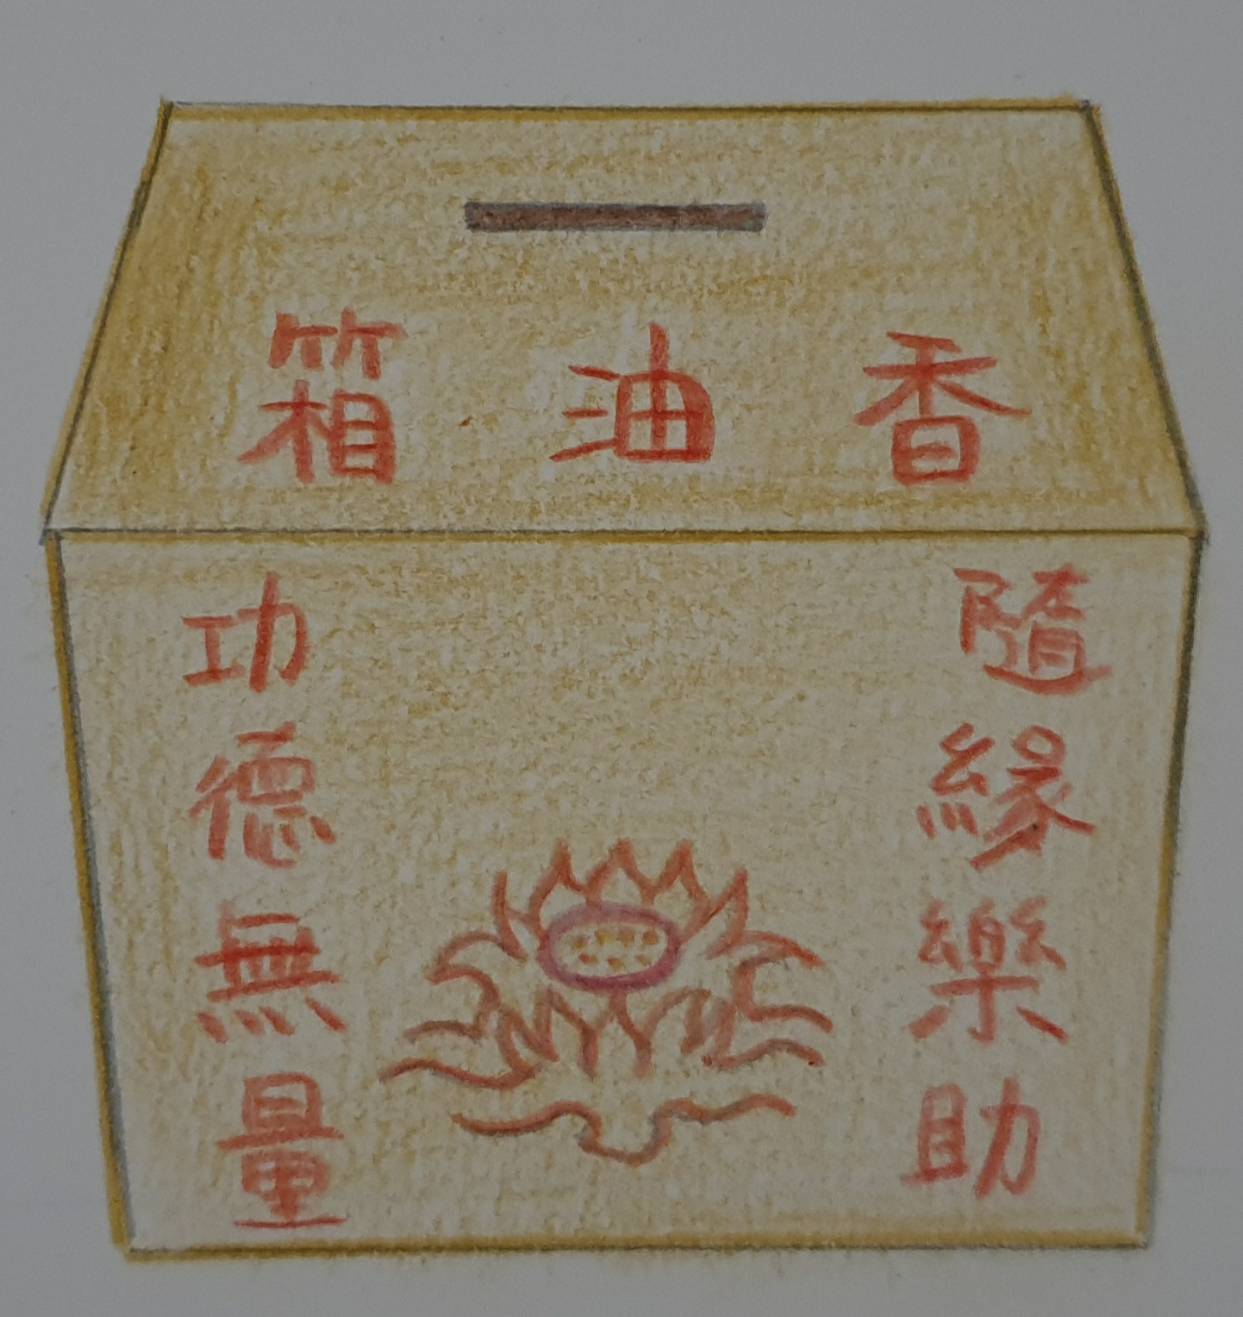 香油箱
隨緣樂助
功德無量